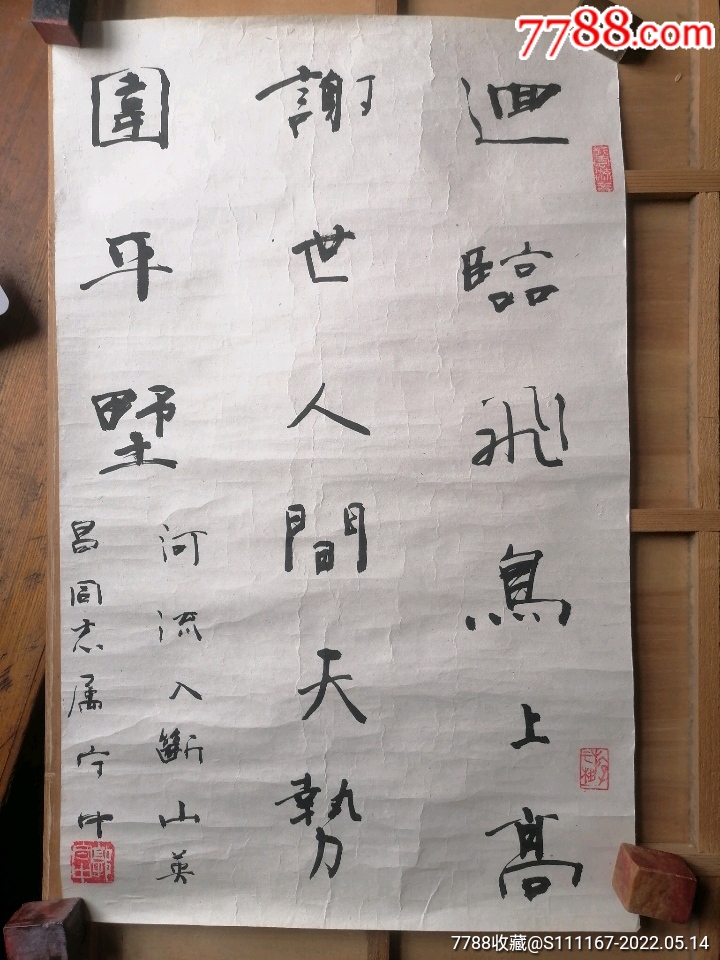 7788.com
迥臨飛鳥上高
謝世人間天勢
圍平野
河流入斷山英
昌同志属宁中
7788收藏@S111167-2022.05.14